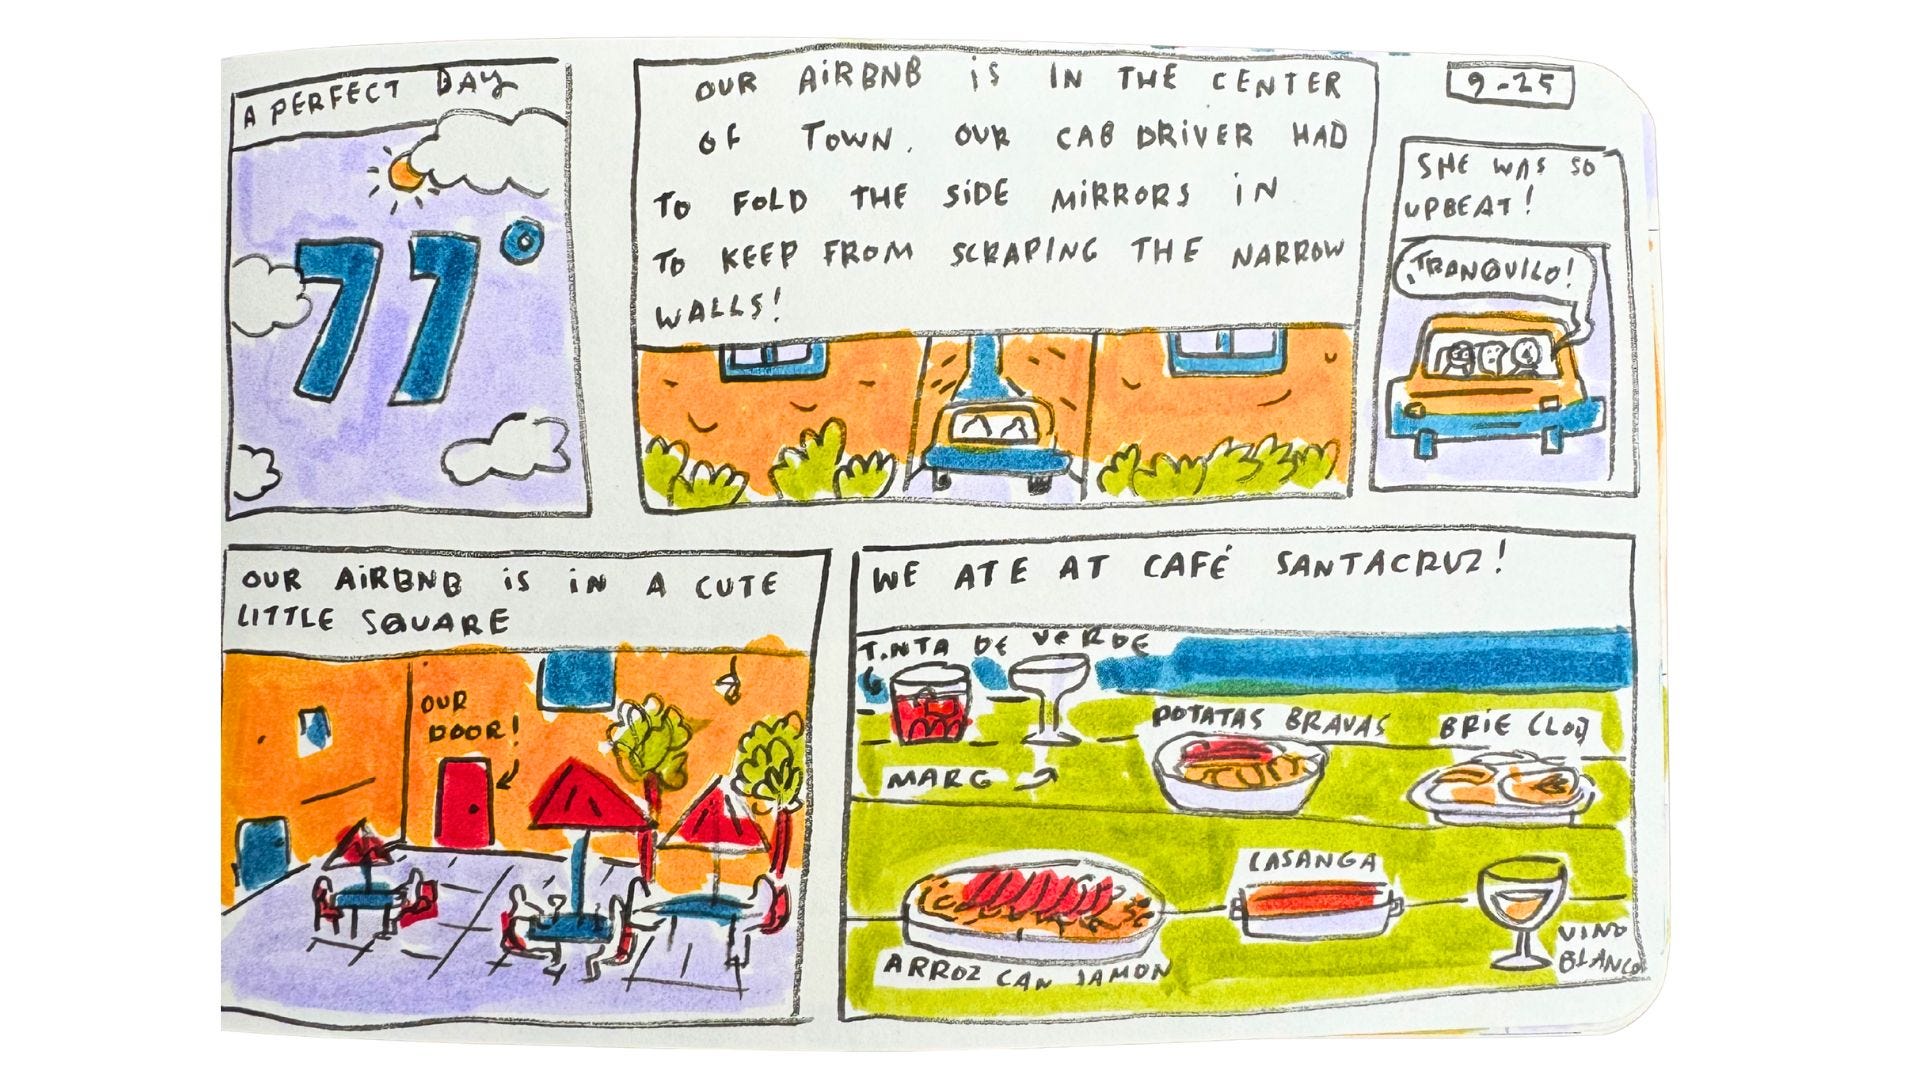 A PERFECT DAY
77°
OUR AIRBNB IS IN THE CENTER
OF TOWN. OUR CAB DRIVER HAD
TO FOLD THE SIDE MIRRORS IN
TO KEEP FROM SCRAPING THE NARROW
WALLS!
9-25
SHE WAS SO
UPBEAT!
¡TRANQUILO!
OUR AIRBNB IS IN A CUTE
LITTLE SQUARE
OUR
DOOR!
WE ATE AT CAFÉ SANTACRUZ!
TINTA DE VERDE
MARG
POTATAS BRAVAS
BRIE
ARROZ CAN JAMON
LASANGA
VINO
BLANCO